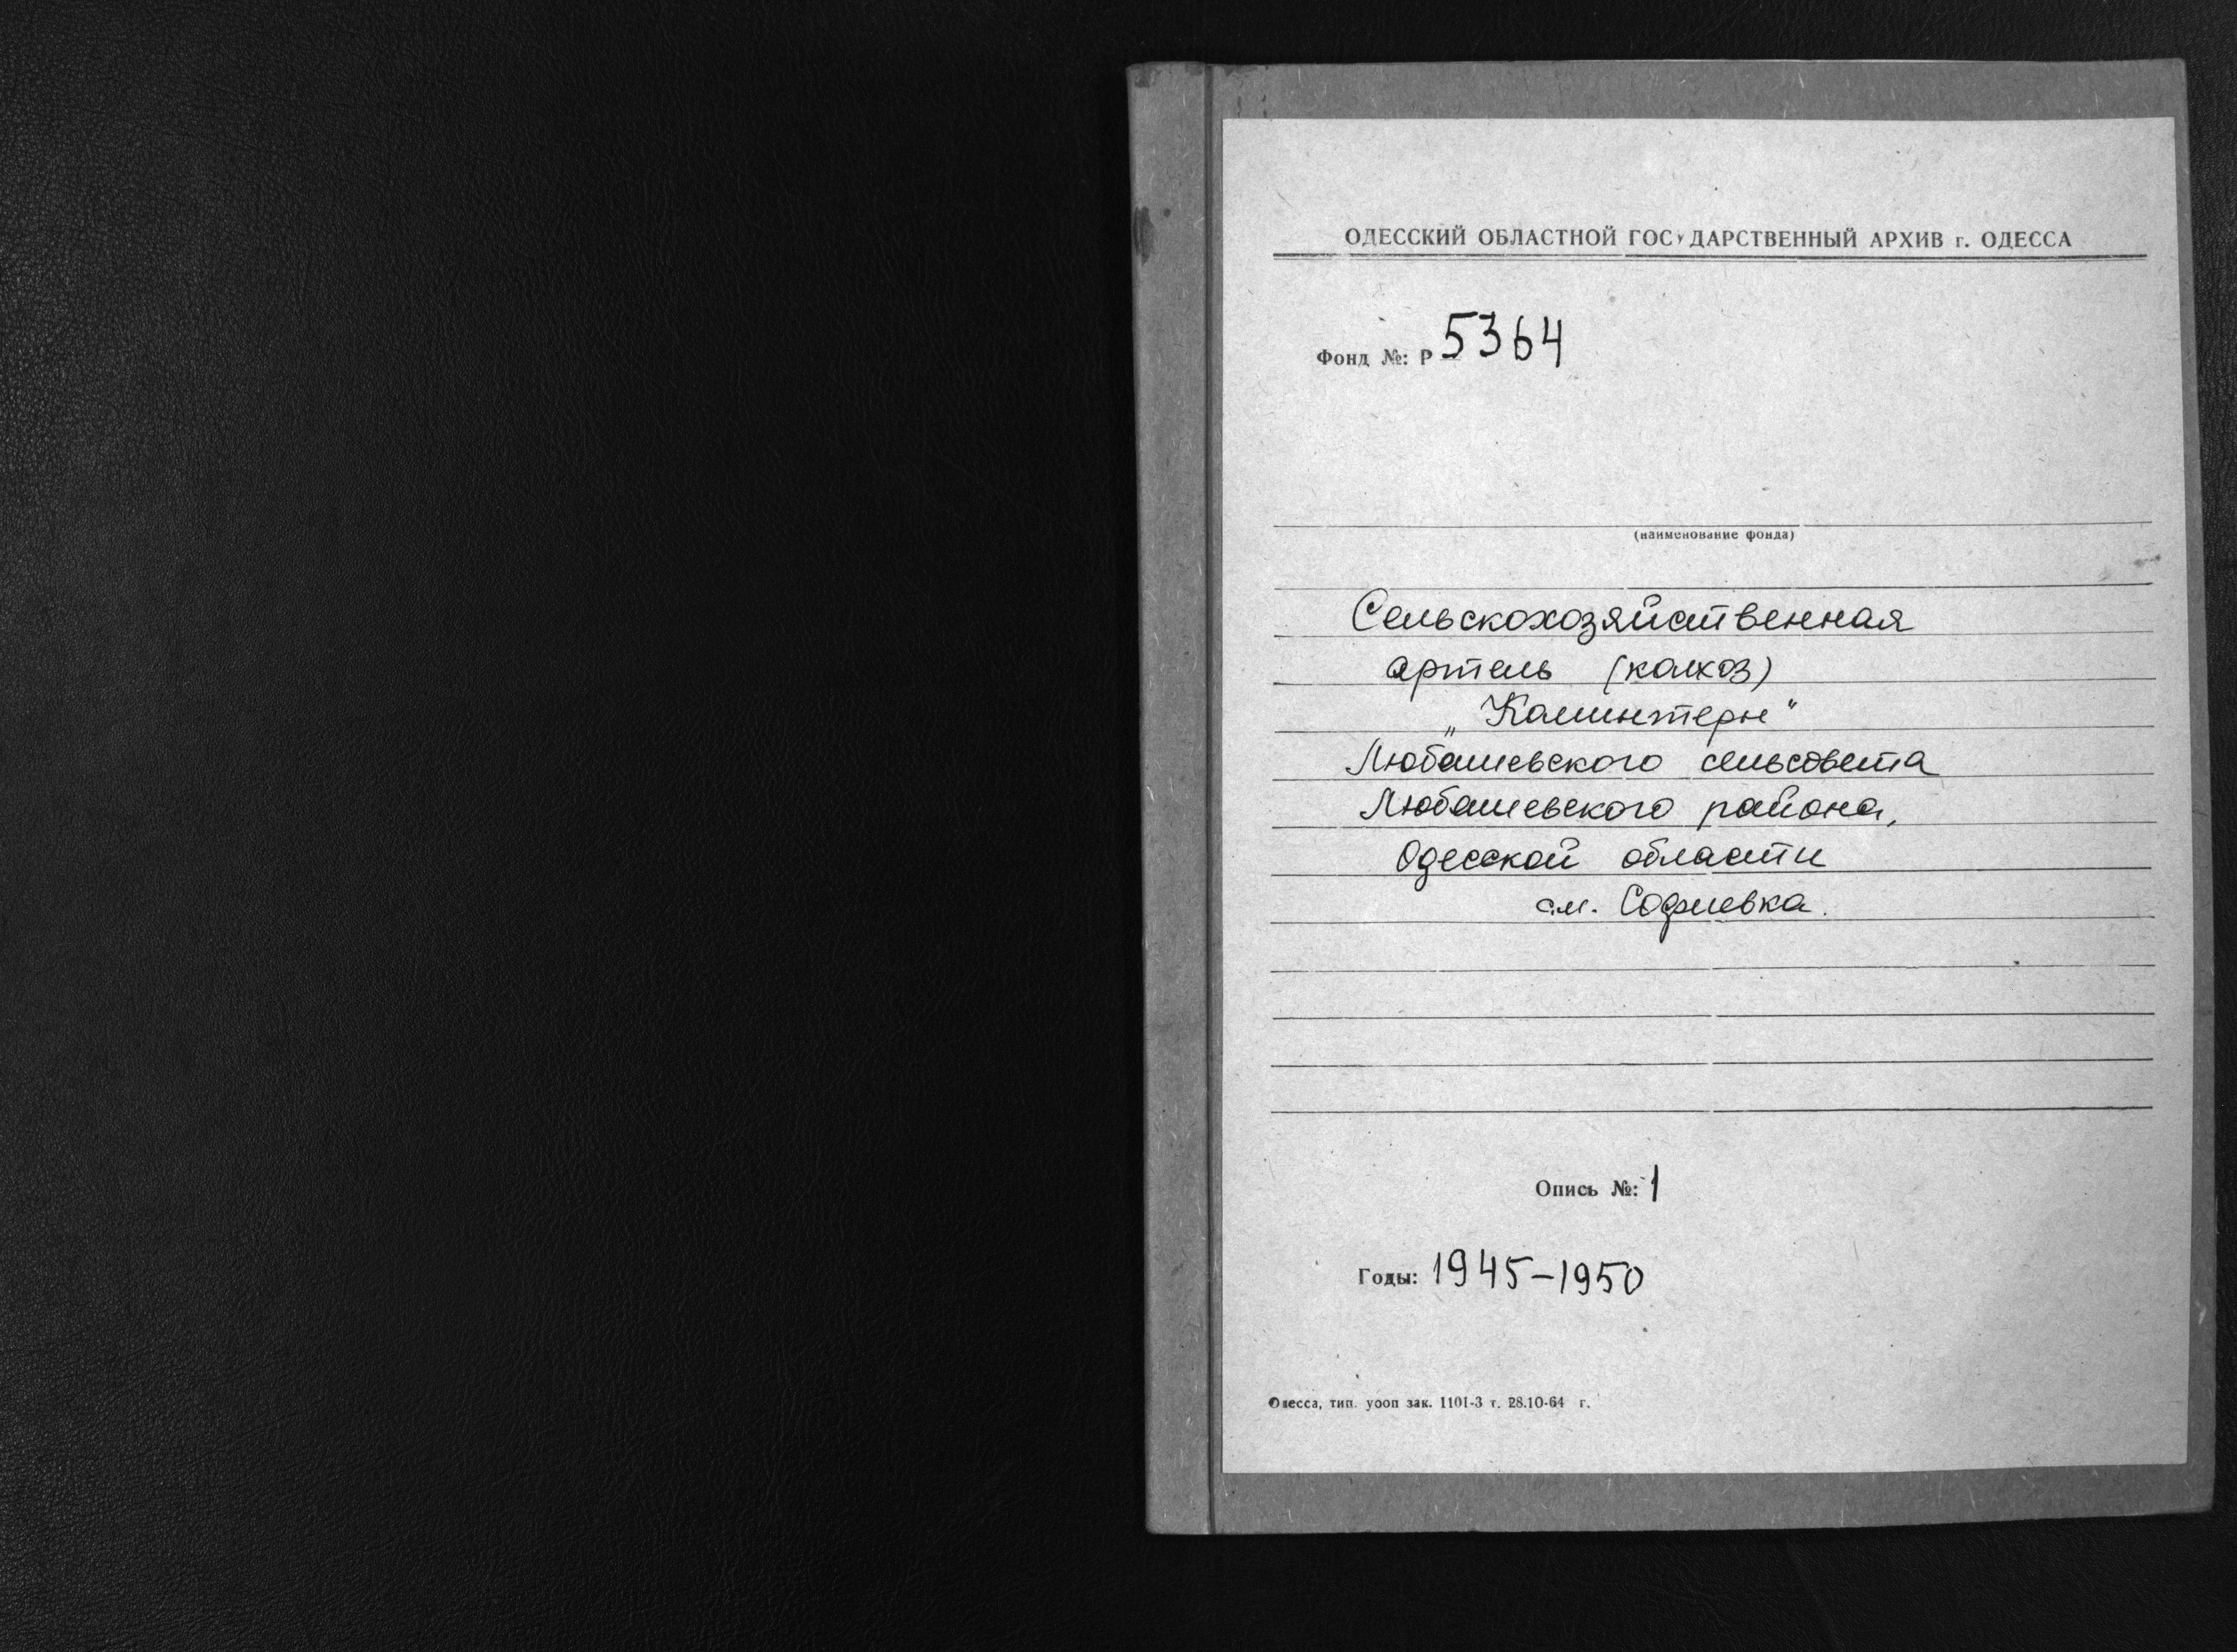 ОДЕССКИЙ ОБЛАСТНОЙ ГОСУДАРСТВЕННЫЙ АРХИВ г. ОДЕССА
Фонд №: Р 5364
(наименование фонда)
Сельскохозяйственная
артель (колхоз)
„Коминтерн"
Любашевского сельсовета
Любашевского района,
Одесской области
с.м. Софиевка.
Опись №: 1
Годы: 1945-1950
Одесса, тип. уооп зак. 1101-3 т. 28.10-64 г.